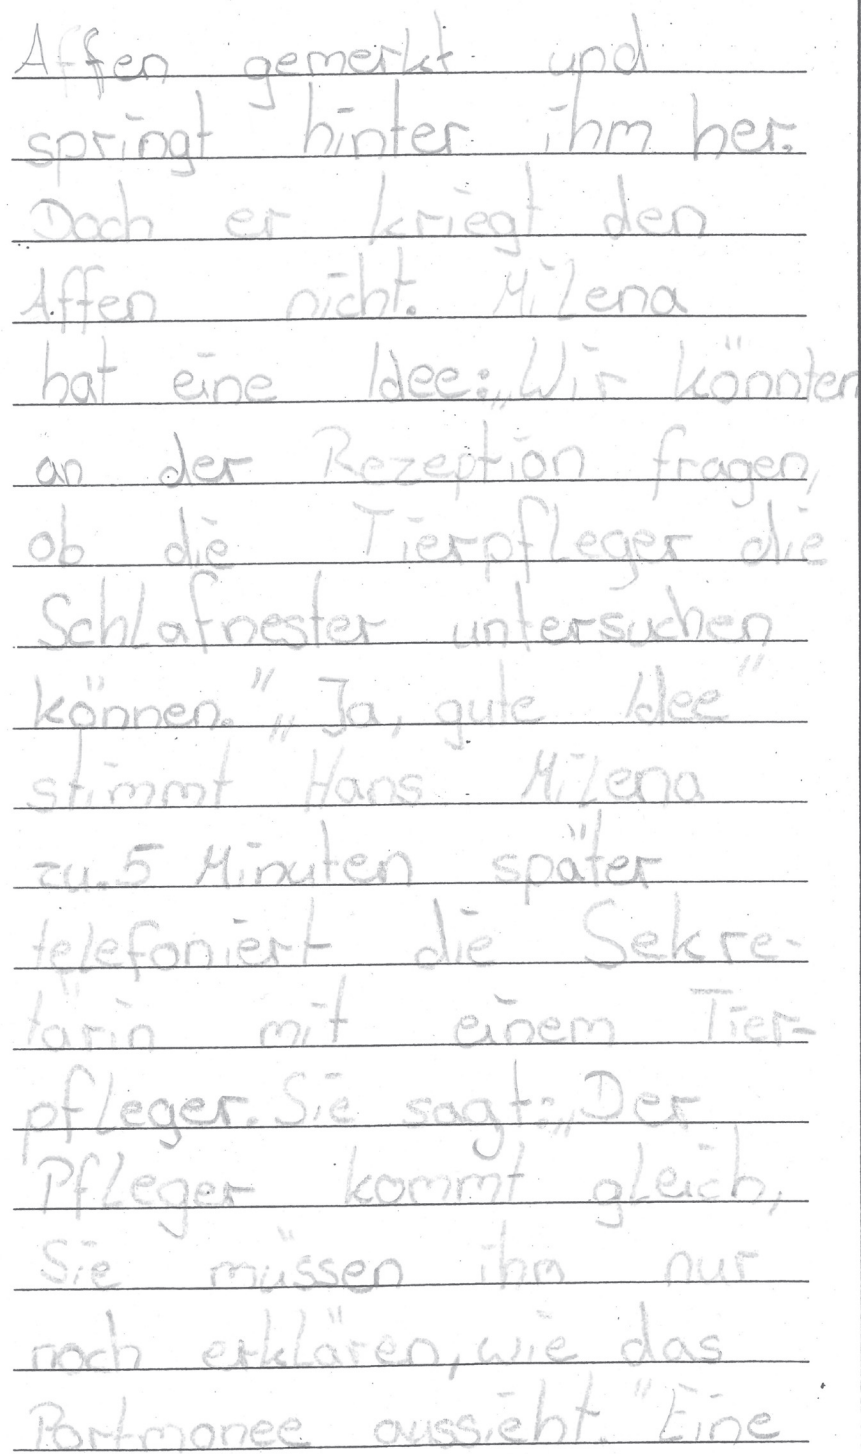 Affen gemerkt und
springt hinter ihm her.
Doch er kriegt den
Affen nicht. Milena
hat eine Idee: „Wir könnten
an der Rezeption fragen,
ob die Tierpfleger die
Schlafnester untersuchen
können." „Ja, gute Idee"
stimmt Hans Milena
zu. 5 Minuten später
telefoniert die Sekre-
tärin mit einem Tier-
pfleger. Sie sagt: „Der
Pfleger kommt gleich,
Sie müssen ihm nur
noch erklären, wie das
Portmonee aussieht." Eine